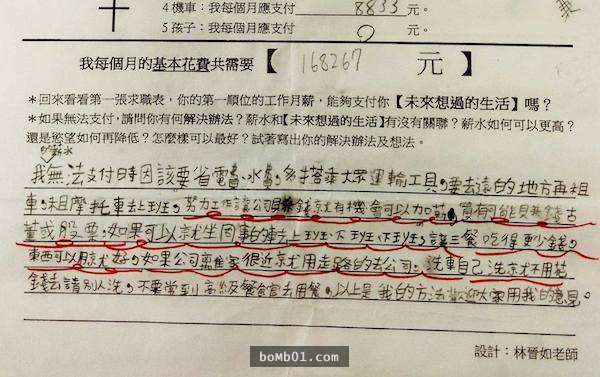 4 機車：我每個月應支付 8833 元。
5 孩子：我每個月應支付 0 元。
我每個月的基本花費共需要【 168267 元 】
＊回來看看第一張求職表，你的第一順位的工作月薪，能夠支付你【未來想過的生活】嗎？
＊如果無法支付，請問你有何解決辦法？薪水和【未來想過的生活】有沒有關聯？薪水如何可以更高？
還是慾望如何再降低？怎麼樣可以最好？試著寫出你的解決辦法及想法。
我無法支付時因該要省電費、水費。多搭乘大眾運輸工具。要去遠的地方再租
車。租摩托車去上班。努力工作讓公司賺錢就有機會可以加薪。買有可能
董或股票。如果可以就坐同事的車去上班、下班。三餐吃得少錢。
東西可以用就好。如果公司離家很近就用走路的去公司。洗車自己洗就不用花
錢去請別人洗。不要常到高級餐館去用餐。以上是我的方法歡迎大家用我的意見。
設計：林晉如老師
boMb01.com